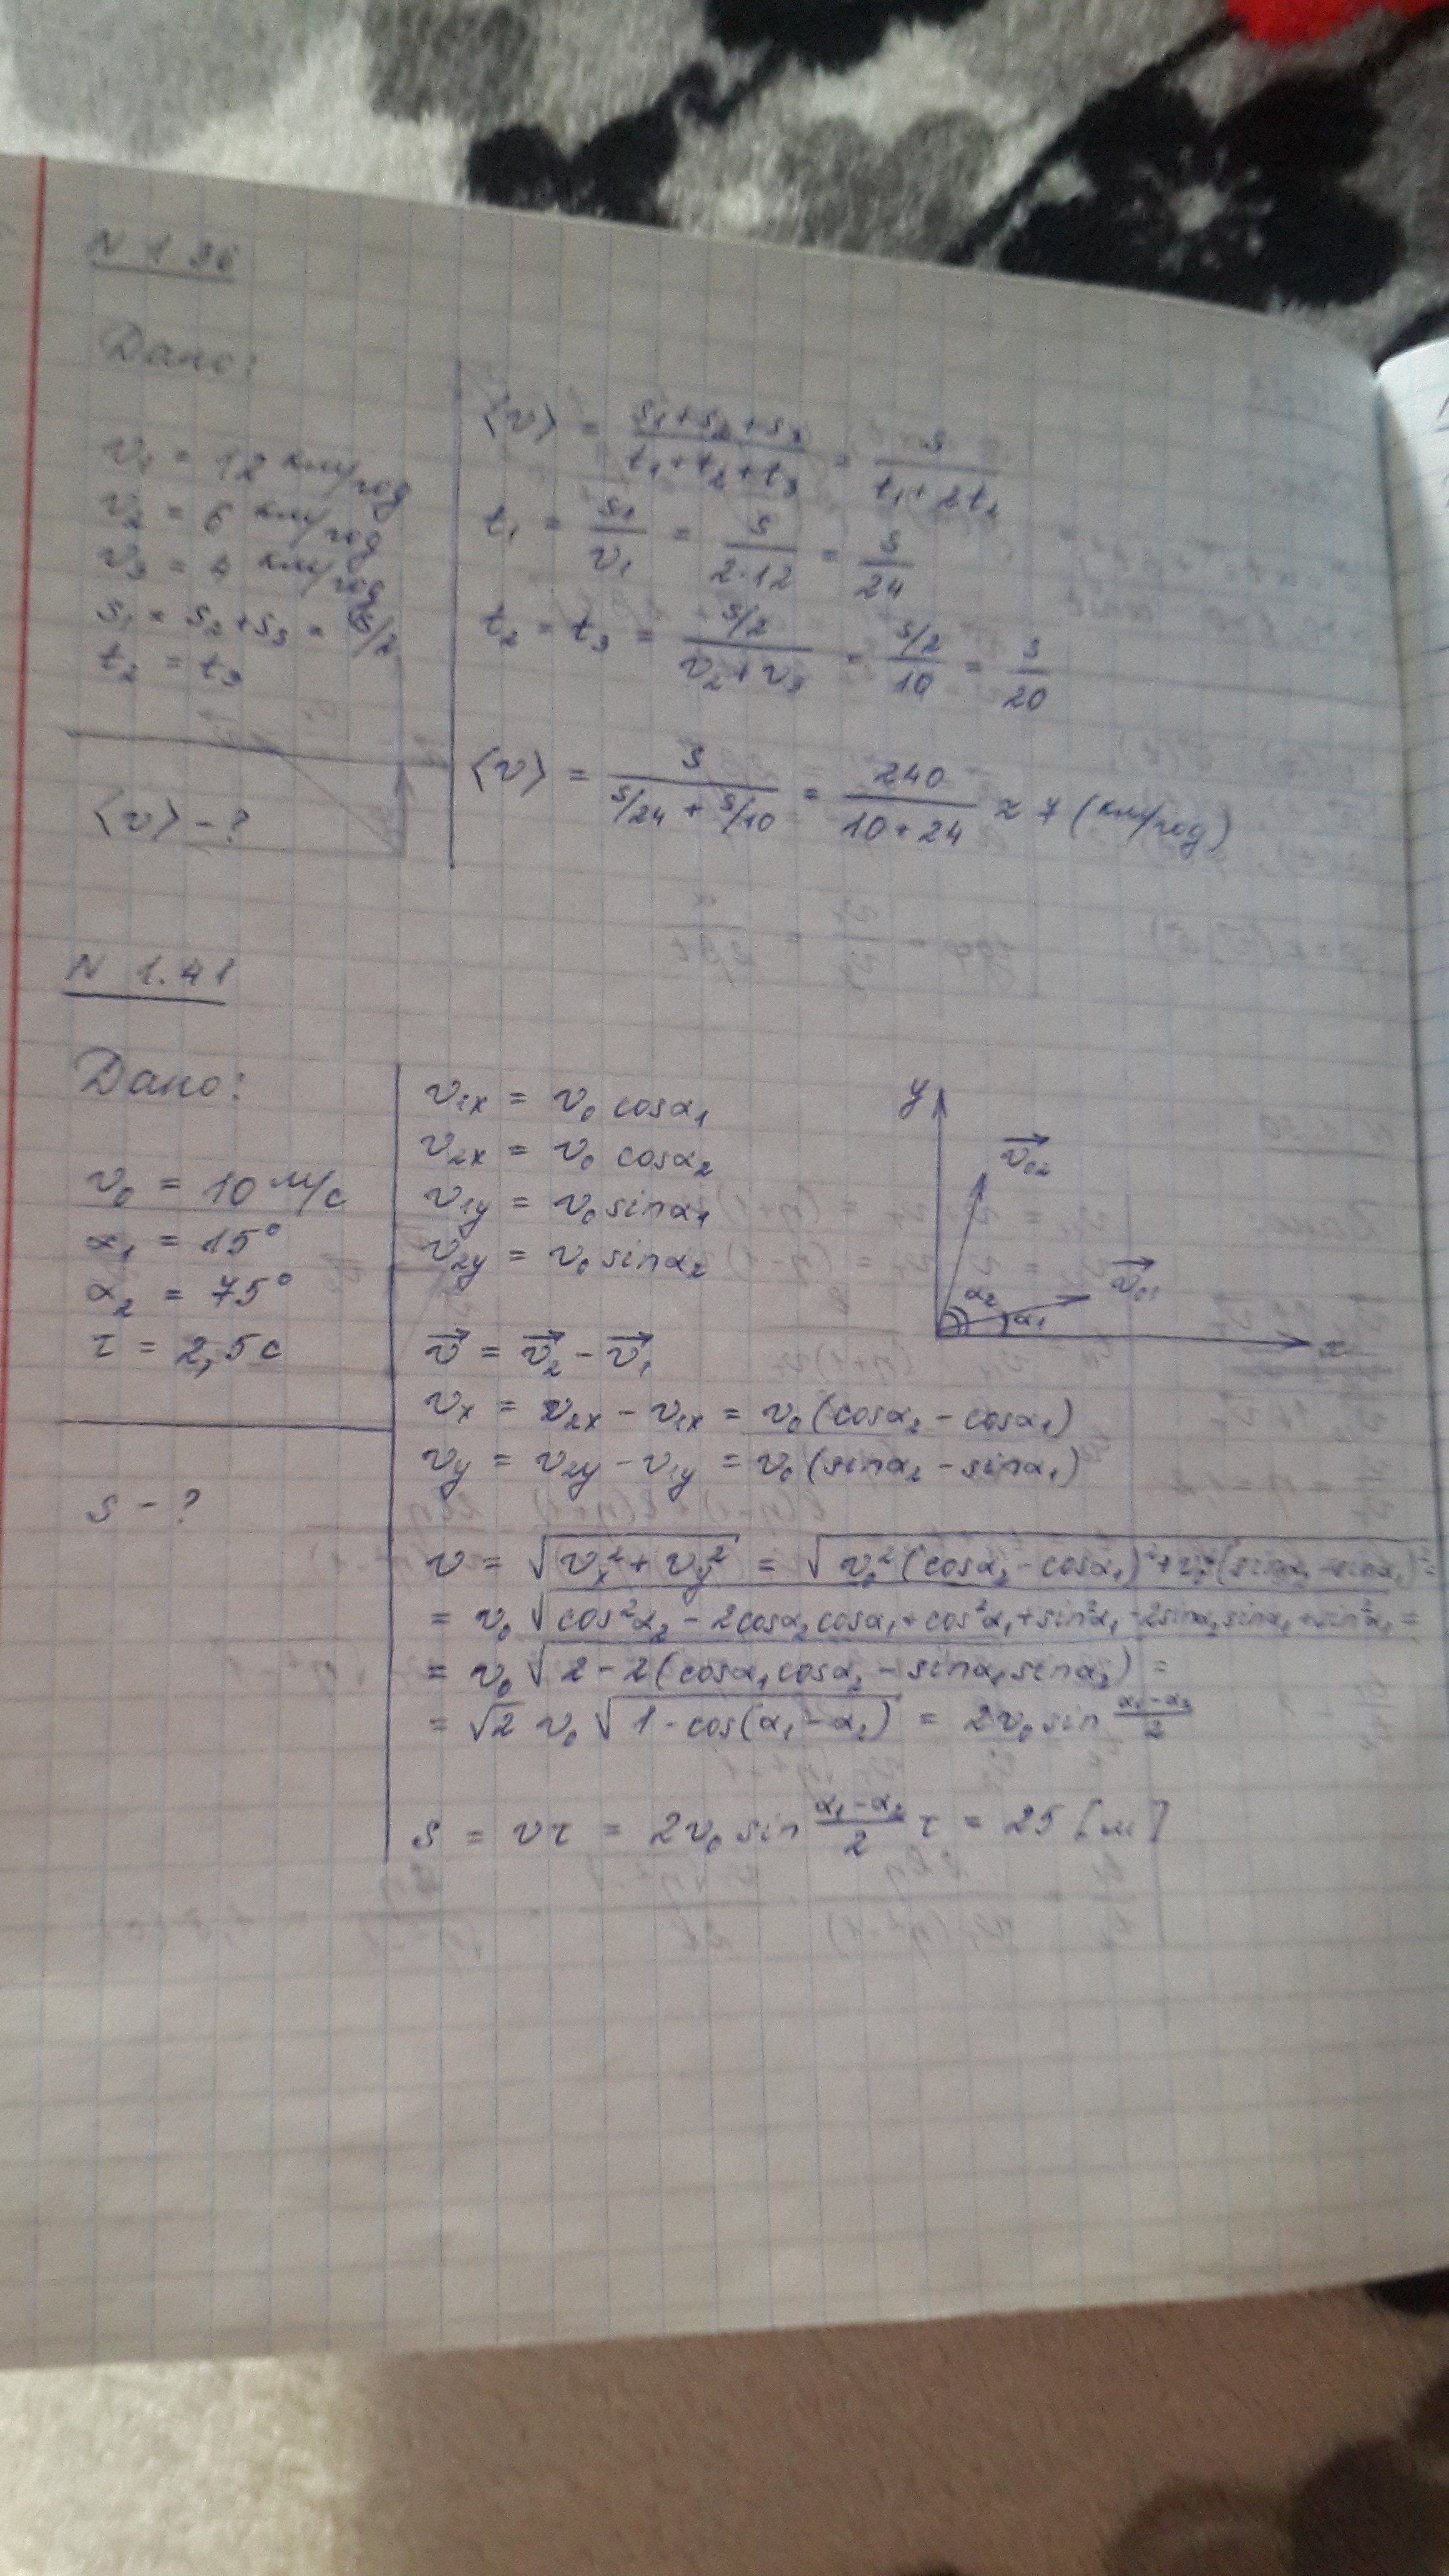 N 1 36
Дано:
v₁ = 12 км/год
v₂ = 6 км/год
v₃ = 4 км/год
s₁ = s₂+s₃ = s/2
t₂ = t₃
⟨v⟩ - ?
⟨v⟩ = (s₁+s₂+s₃)/(t₁+t₂+t₃) = s/(t₁+2t₂)
t₁ = s₁/v₁ = s/(2·12) = s/24
t₂ = t₃ = (s/2)/(v₂+v₃) = (s/2)/10 = s/20
⟨v⟩ = s/(s/24 + s/10) = 240/(10+24) ≈ 7 (км/год)
N 1.41
Дано:
v₀ = 10 м/с
α₁ = 15°
α₂ = 75°
τ = 2,5 с
s - ?
v₁ₓ = v₀ cosα₁
v₂ₓ = v₀ cosα₂
v₁y = v₀ sinα₁
v₂y = v₀ sinα₂
y
v⃗₀₂
v⃗₀₁
α₂
α₁
x
v⃗ = v⃗₂ - v⃗₁
vₓ = v₂ₓ - v₁ₓ = v₀(cosα₂ - cosα₁)
vy = v₂y - v₁y = v₀(sinα₂ - sinα₁)
v = √(vₓ² + vy²) = √(v₀²(cosα₂ - cosα₁)² + v₀²(sinα₂ - sinα₁)²) =
= v₀ √(cos²α₂ - 2cosα₂cosα₁ + cos²α₁ + sin²α₁ - 2sinα₂sinα₁ + sin²α₁) =
= v₀ √(2 - 2(cosα₁cosα₂ - sinα₁sinα₂)) =
= √2 v₀ √(1 - cos(α₁ - α₂)) = 2v₀ sin (α₁-α₂)/2
s = vτ = 2v₀ sin (α₁-α₂)/2 τ = 25 [м]